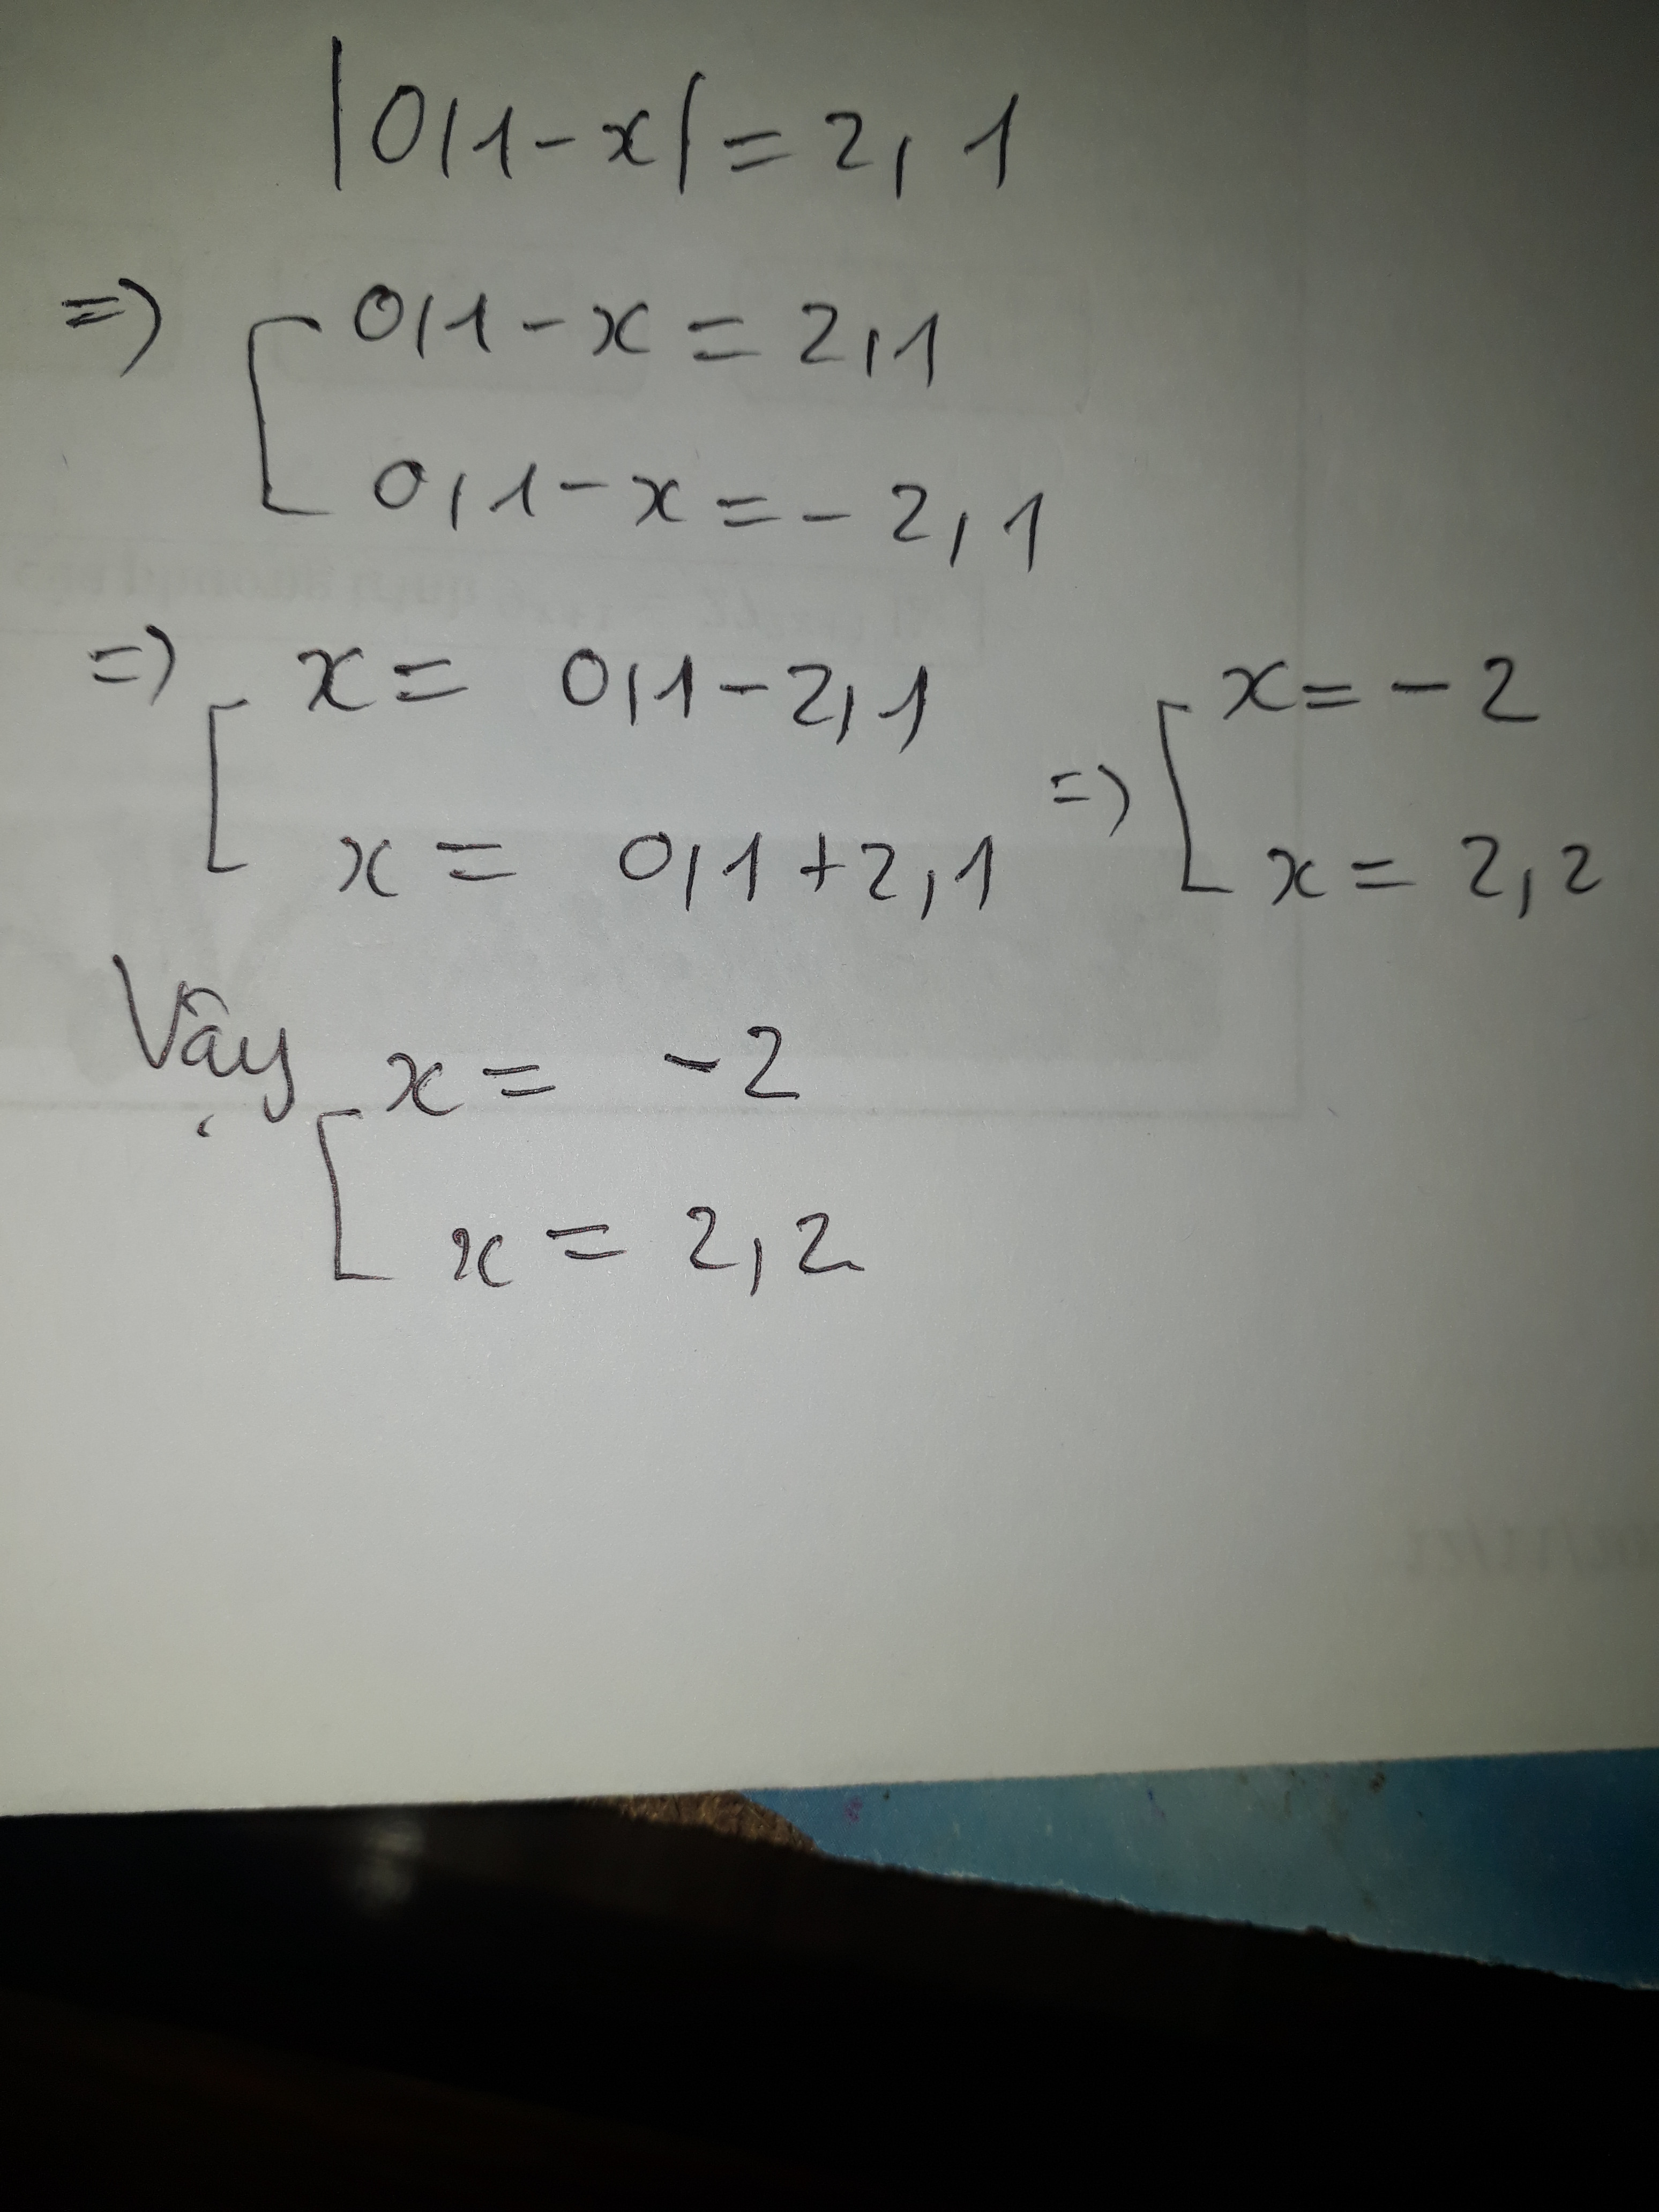 |0,1-x|=2,1
=> [ 0,1-x=2,1
0,1-x=-2,1
=> [ x= 0,1-2,1 => [ x=-2
x= 0,1+2,1 x=2,2
Vậy [ x= -2
x= 2,2